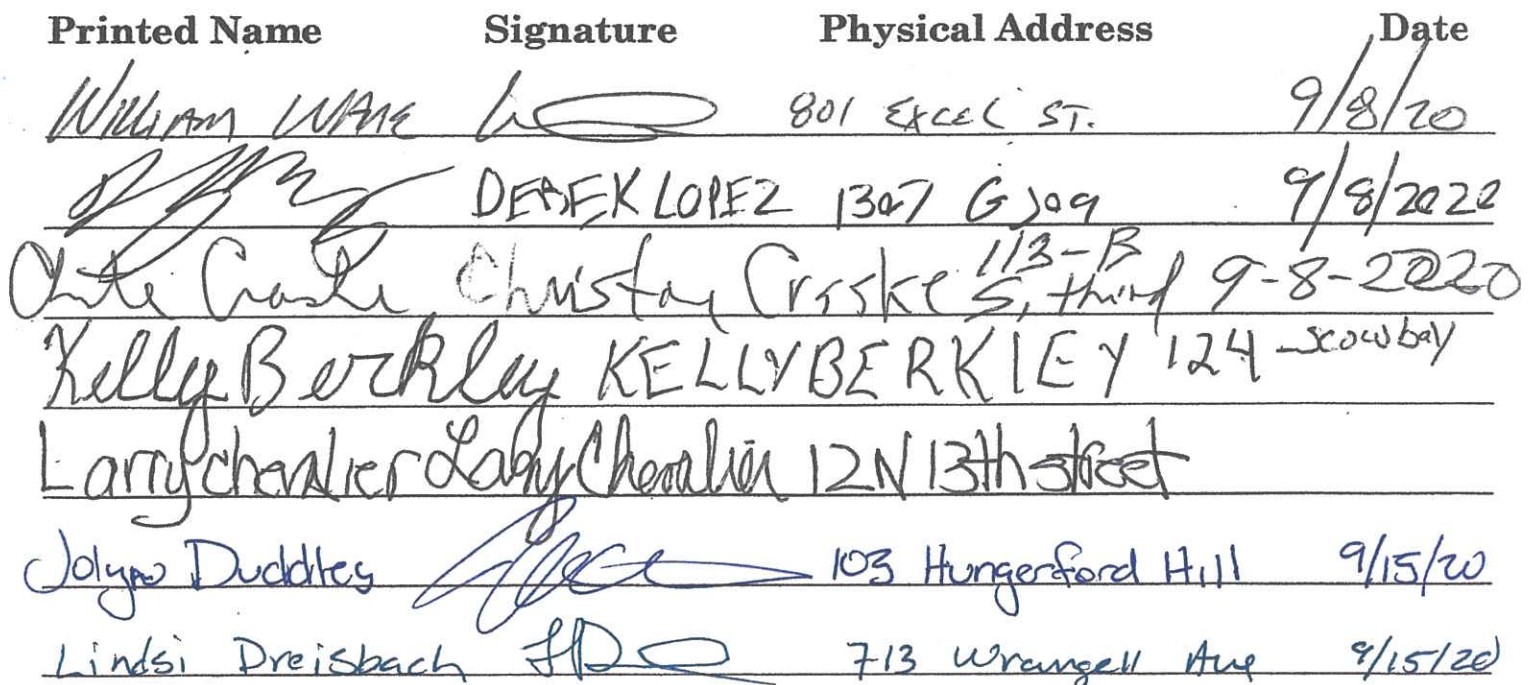 Printed Name Signature Physical Address Date
William Ware 801 Excel St. 9/8/20
DEREK LOPEZ 1307 G 9/8/2020
113-B
Christay S. third 9-8-2020
Kelly Berkley KELLY BERKLEY 124 scowbay
Larry chevalier Larry Chevalier 12N 13th street
Duddles 103 Hungerford Hill 9/15/20
Lindsi Dreisbach 713 Wrangell Ave 9/15/20